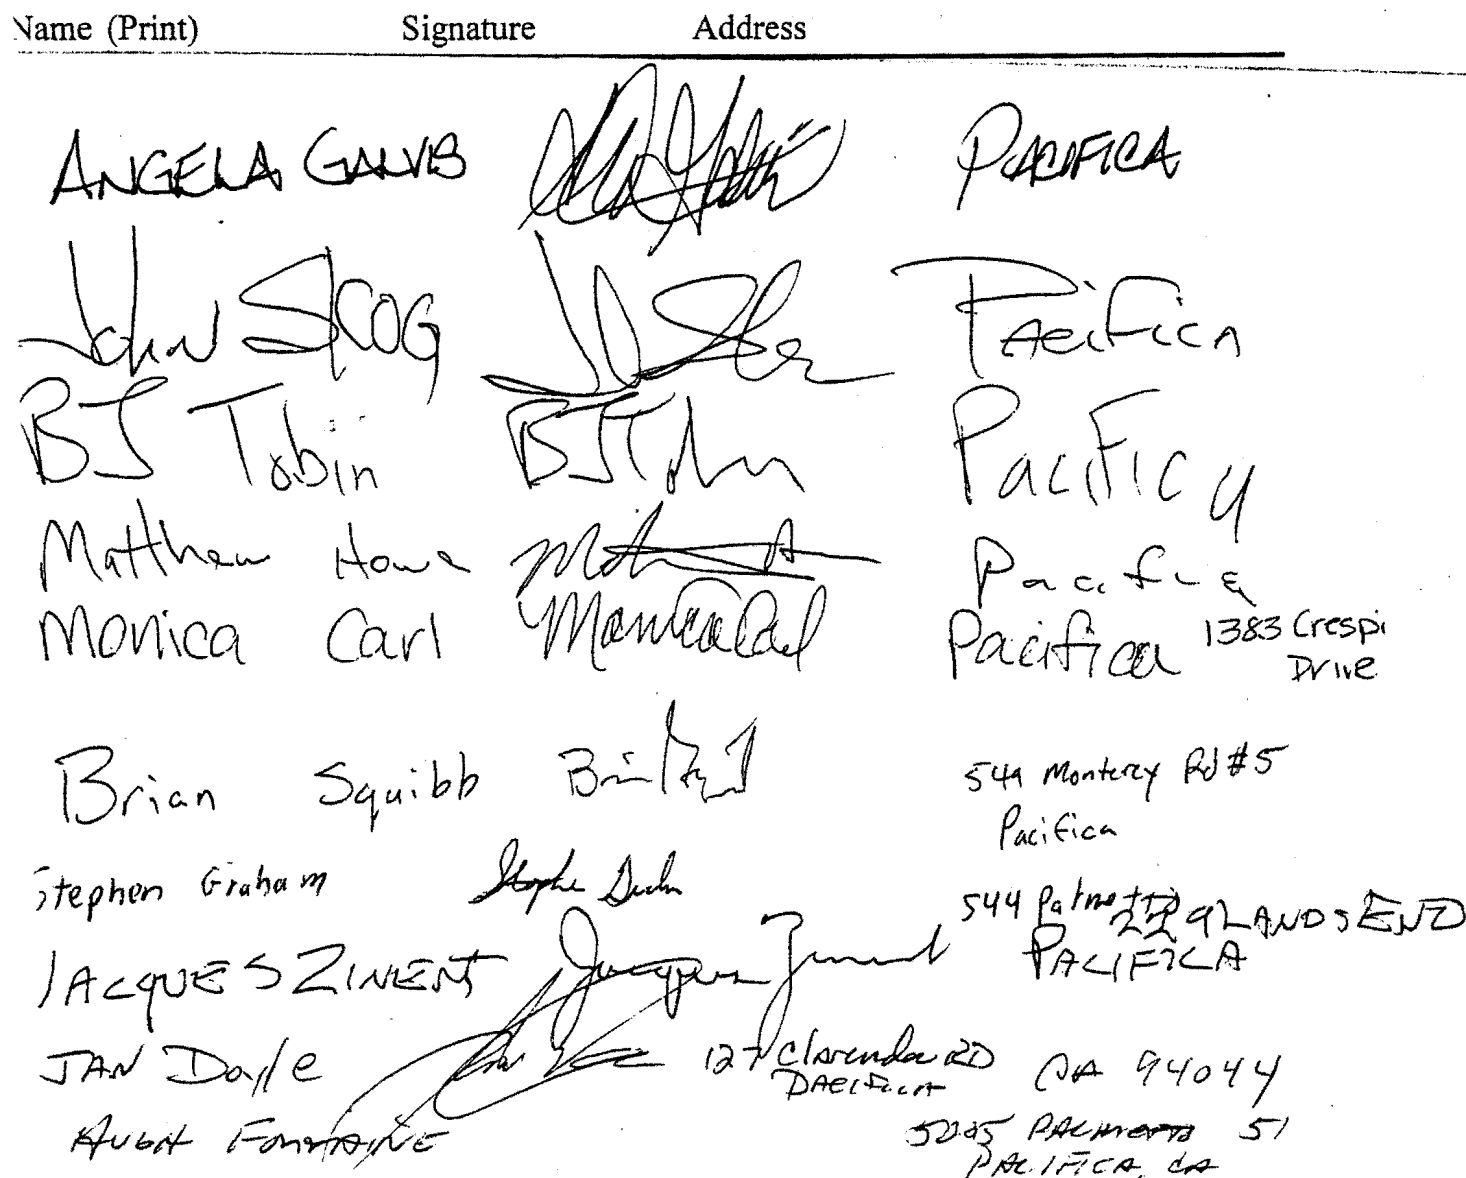 Name (Print) Signature Address
ANGELA GALVIS PACIFICA
John SKOG Pacifica
BJ Tobin BJ Tobin Pacifica
Matthew Howe Pacifica
Monica Carl Monica Carl Pacifica 1383 Crespi
Drive
Brian Squibb 549 Monterey Rd #5
Pacifica
Stephen Graham 544 Palmetto
JACQUES ZINENT 229 LANDS END
PACIFICA
JAN Doyle 127 Clarendon RD CA 94044
PACIFICA
HUGH FONTAINE PALMETTO
PACIFICA, CA